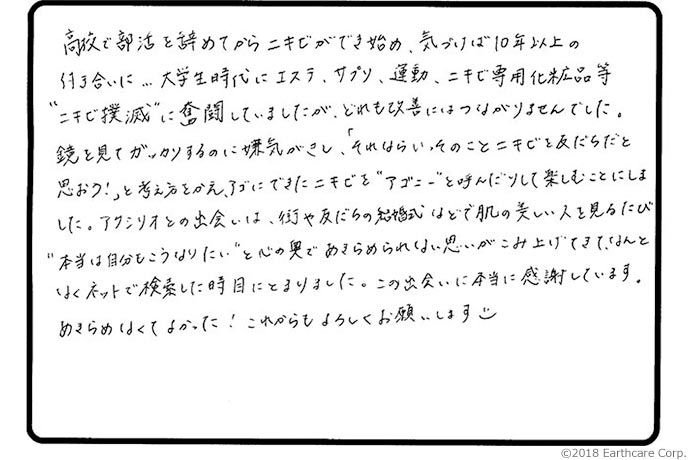 高校で部活を辞めてからニキビができ始め、気づけば10年以上の
付き合いに…大学生時代にエステ、サプリ、運動、ニキビ専用化粧品等
"ニキビ撲滅"に奮闘していましたが、どれも改善にはつながりませんでした。
鏡を見てガッカリするのに嫌気がさし、「それならいっそのことニキビを友だちだと
思おう!」と考え方をかえ、アゴにできたニキビを"アゴニー"と呼んだりして楽しむことにしま
した。アクシリオとの出会いは、街や友だちの結婚式などで肌の美しい人を見るたび
"本当は自分もこうなりたい"と心の奥であきらめられない思いがこみ上げてきて、なんと
なくネットで検索した時目にとまりました。この出会いに本当に感謝しています。
あきらめなくてよかった!これからもよろしくお願いします
©2018 Earthcare Corp.